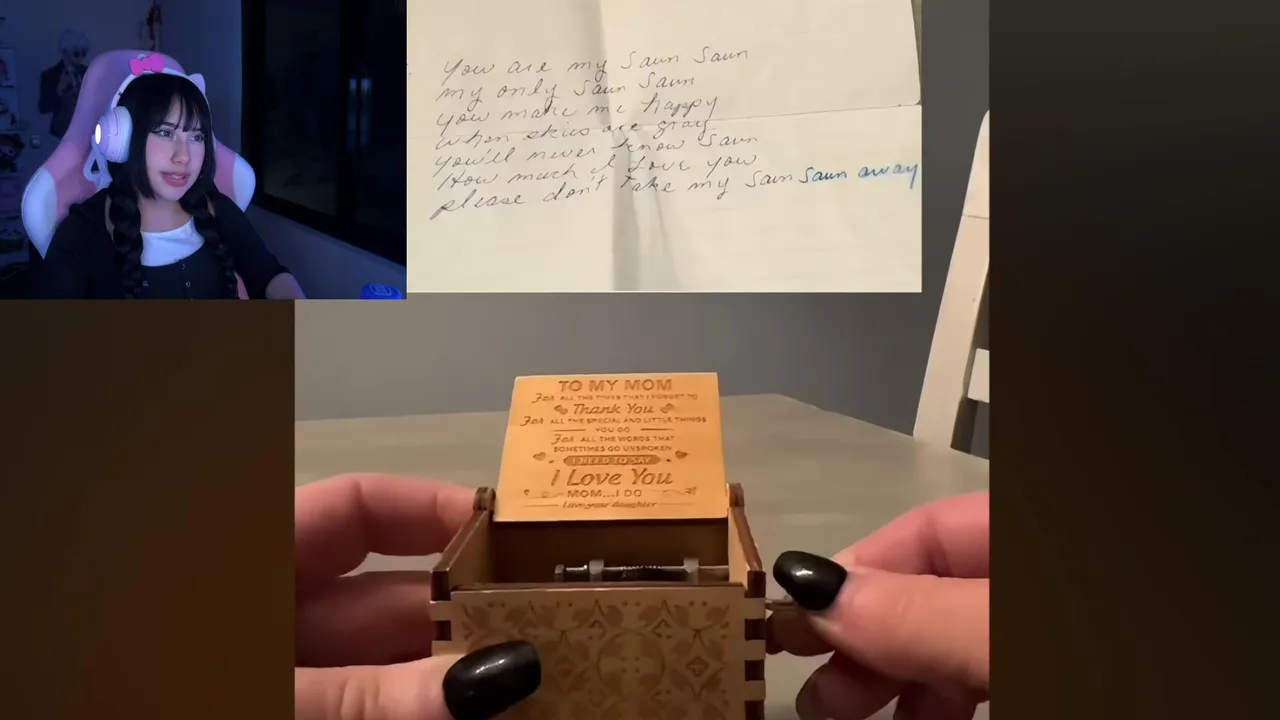 You are my Saun Saun
my only Saun Saun
you make me happy
when skies are gray
you'll never know Saun
How much I Love you
please don't take my Saun Saun away
TO MY MOM
For ALL THE TIMES THAT I FORGET TO
Thank You
For ALL THE SPECIAL AND LITTLE THINGS
YOU DO
For ALL THE WORDS THAT
SOMETIMES GO UNSPOKEN
I NEED TO SAY
I Love You
MOM...I DO
Love your daughter